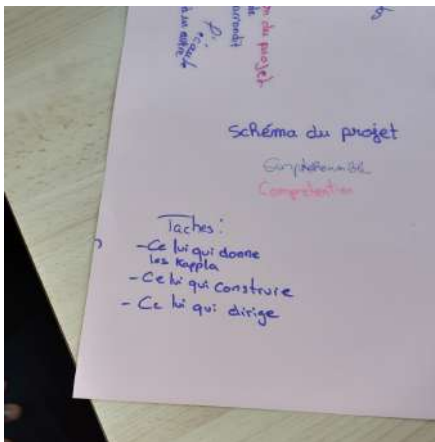 on du projet
écart
schéma du projet
Compréhension
Taches :
- Ce lui qui donne
les Kappla
- Ce lui qui construire
- Ce lui qui dirige